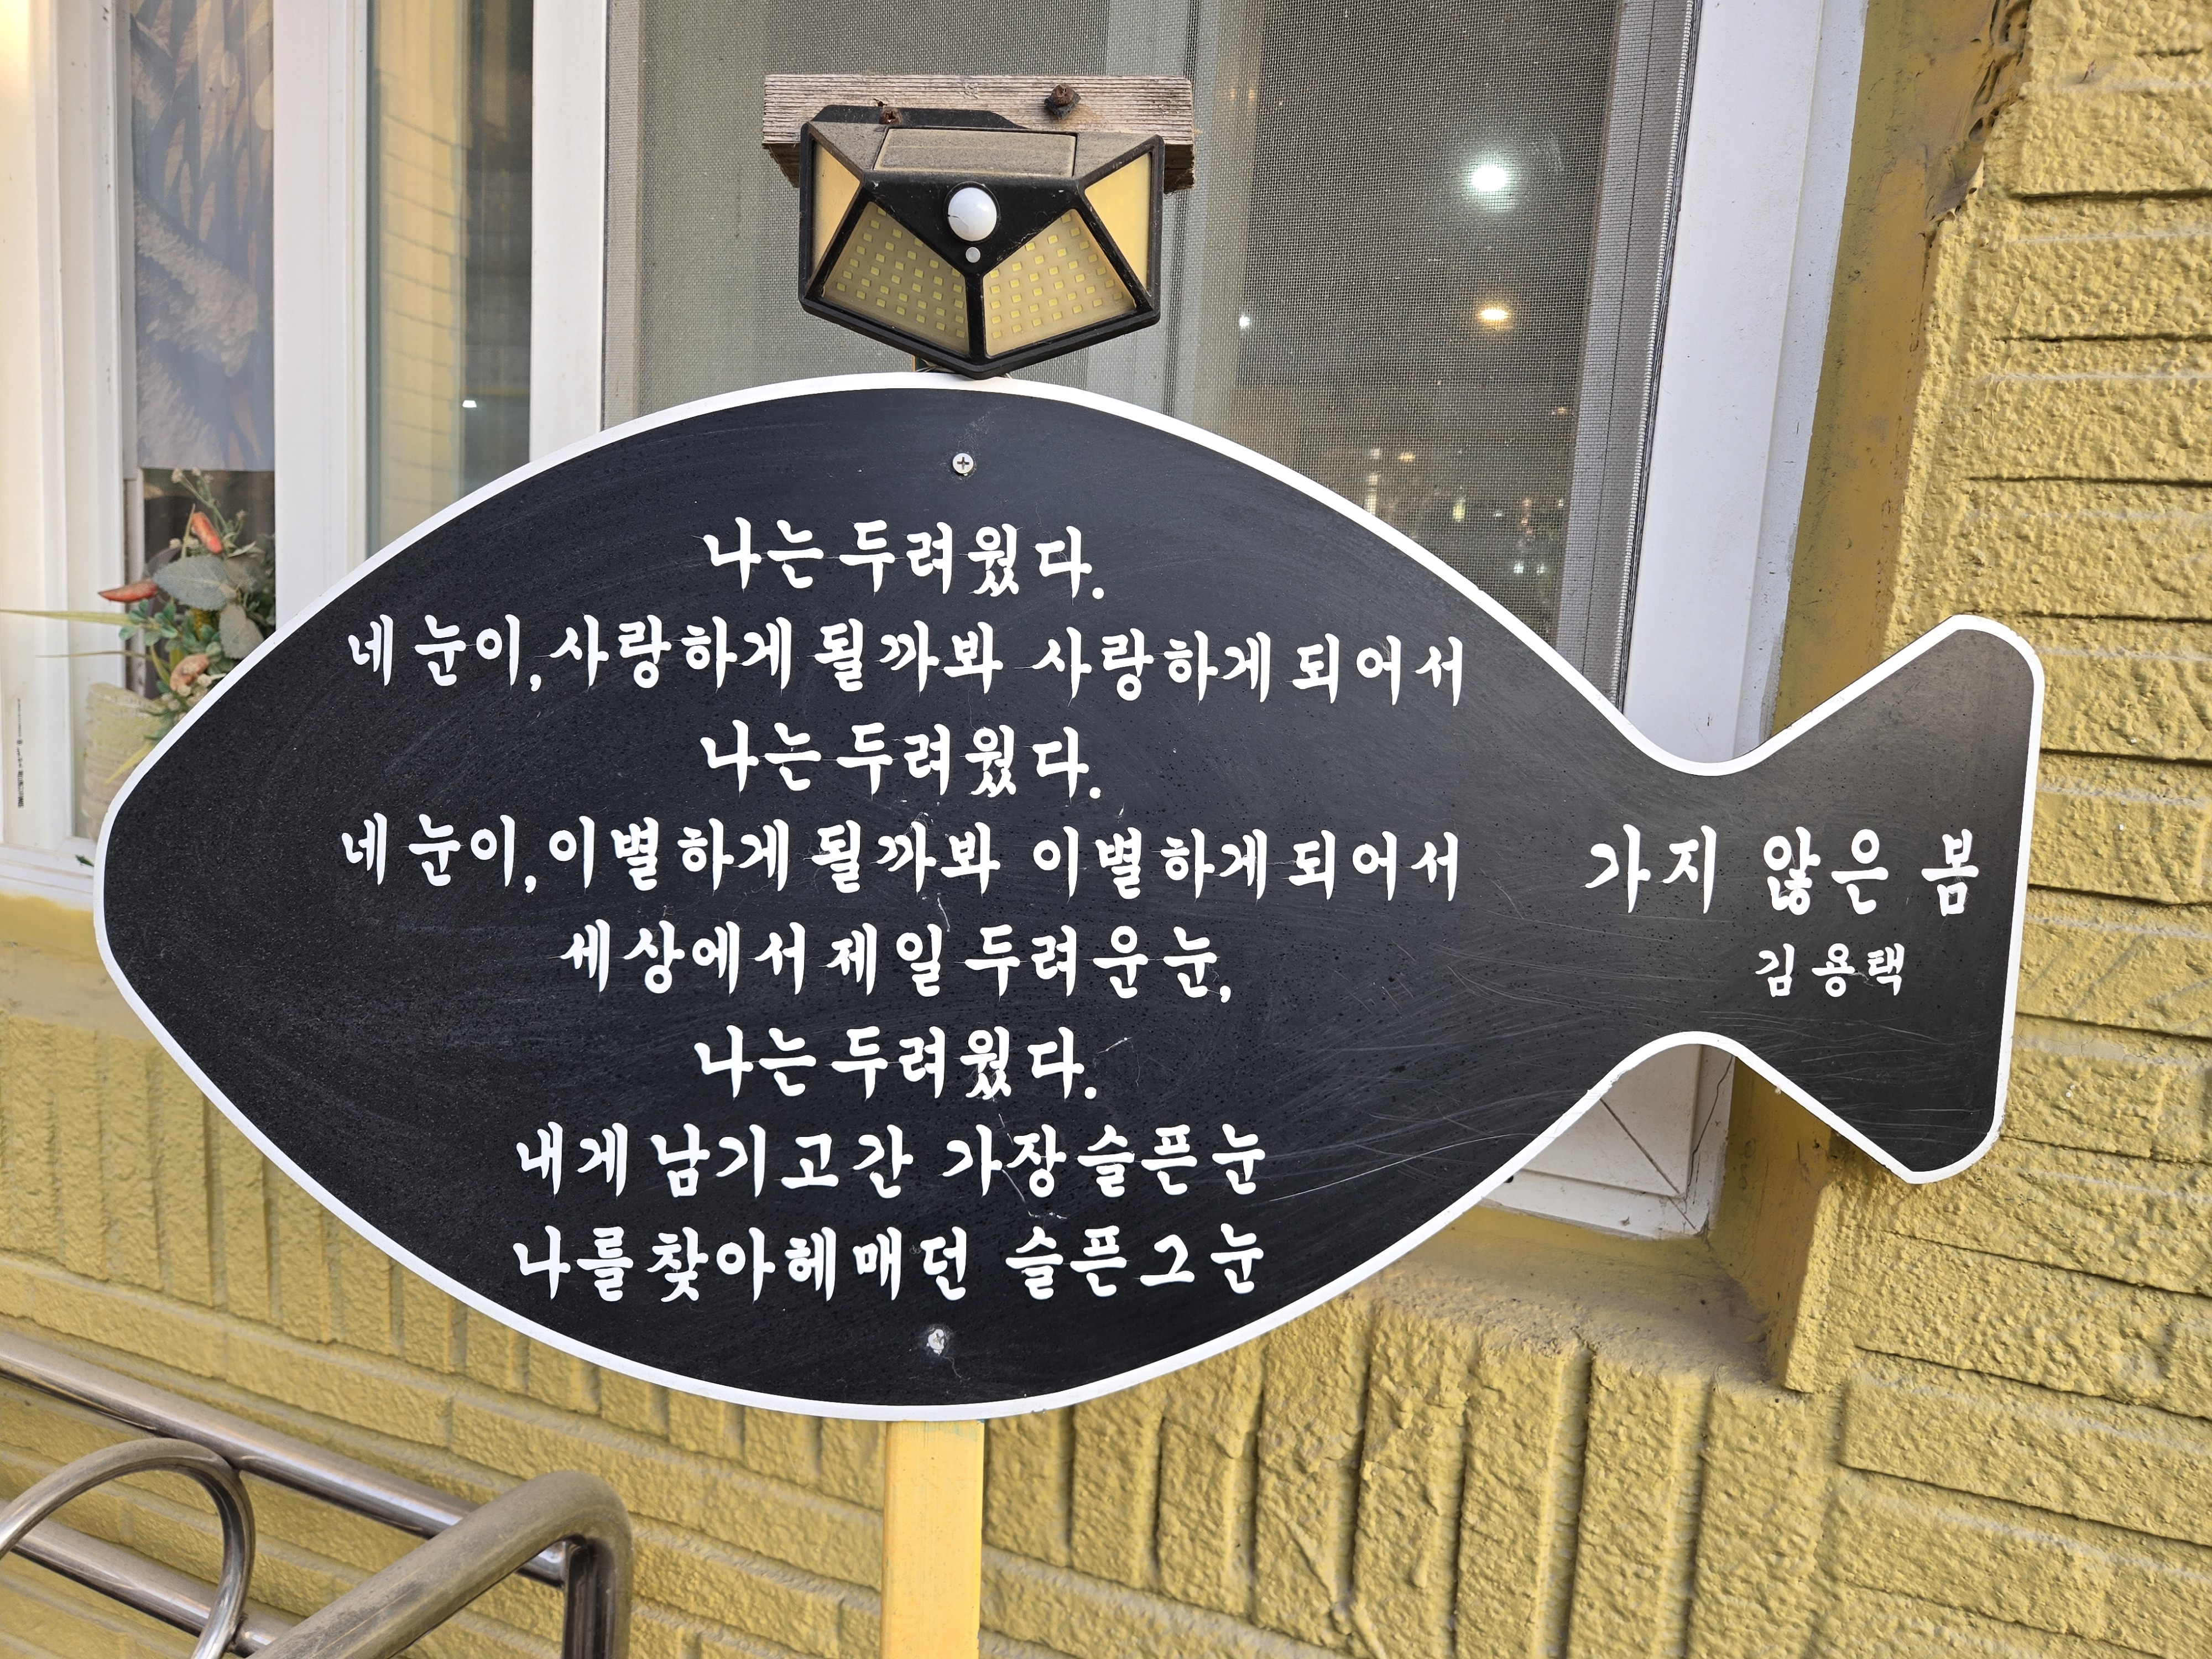 나는 두려웠다.
네 눈이, 사랑하게 될까봐 사랑하게 되어서
나는 두려웠다.
네 눈이, 이별하게 될까봐 이별하게 되어서
세상에서 제일 두려운 눈,
나는 두려웠다.
내게 남기고 간 가장 슬픈 눈
나를 찾아 헤매던 슬픈 그 눈
가지 않은 봄
김용택